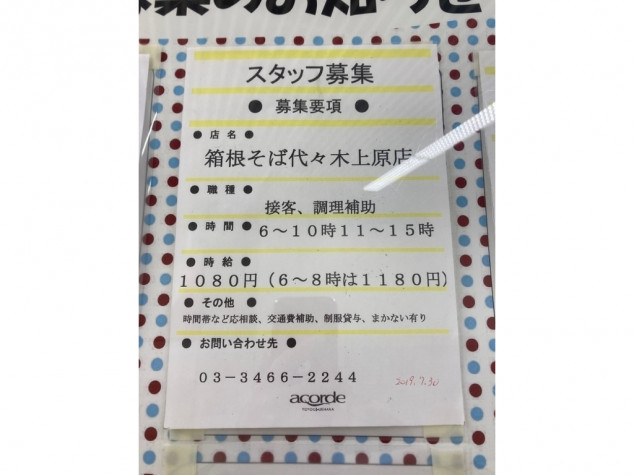 募集のお知らせ
スタッフ募集
● 募集要項 ●
● 店名 ●
箱根そば代々木上原店
● 職種 ●
接客、調理補助
● 時間 ● 6～10時11～15時
● 時給 ●
1080円（6～8時は1180円）
● その他 ●
時間帯など応相談、交通費補助、制服貸与、まかない有り
● お問い合わせ先 ●
03－3466－2244
2019.7.30
acorde